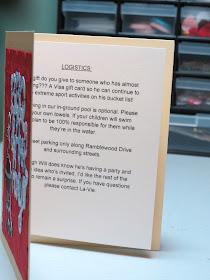 LOGISTICS:
gift do you give to someone who has almost
ing??? A Visa gift card so he can continue to
extreme sport activities on his bucket list!
ing in our in-ground pool is optional. Please
your own towels. If your children will swim
plan to be 100% responsible for them while
they're in the water.
eet parking only along Ramblewood Drive
and surrounding streets.
gh Will does know he's having a party and
idea who's invited, I'd like the rest of the
o remain a surprise. If you have questions
please contact La-Vie.